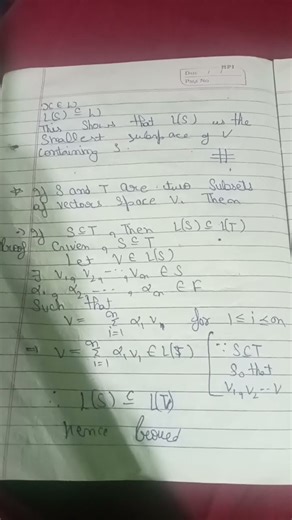 x ∈ W
L(S) ⊆ W
This shows that L(S) is the
Smallest subspace of V
Containing S
* If S and T are two Subsets
of vectors space V. Then
⇒ If S⊆T, Then L(S) ⊆ L(T)
Proof Given, S⊆T
Let V ∈ L(S)
∃ v₁, v₂, ..., vn ∈ S
α₁, α₂ ..., αn ∈ F
Such that
v = n∑i=1 αᵢ vᵢ, for 1 ≤ i ≤ n
⇒ v = n∑i=1 αᵢ vᵢ ∈ L(T) [∵ S⊆T
So that
v₁, v₂ ... v
∴ L(S) ⊆ L(T)
Hence proved